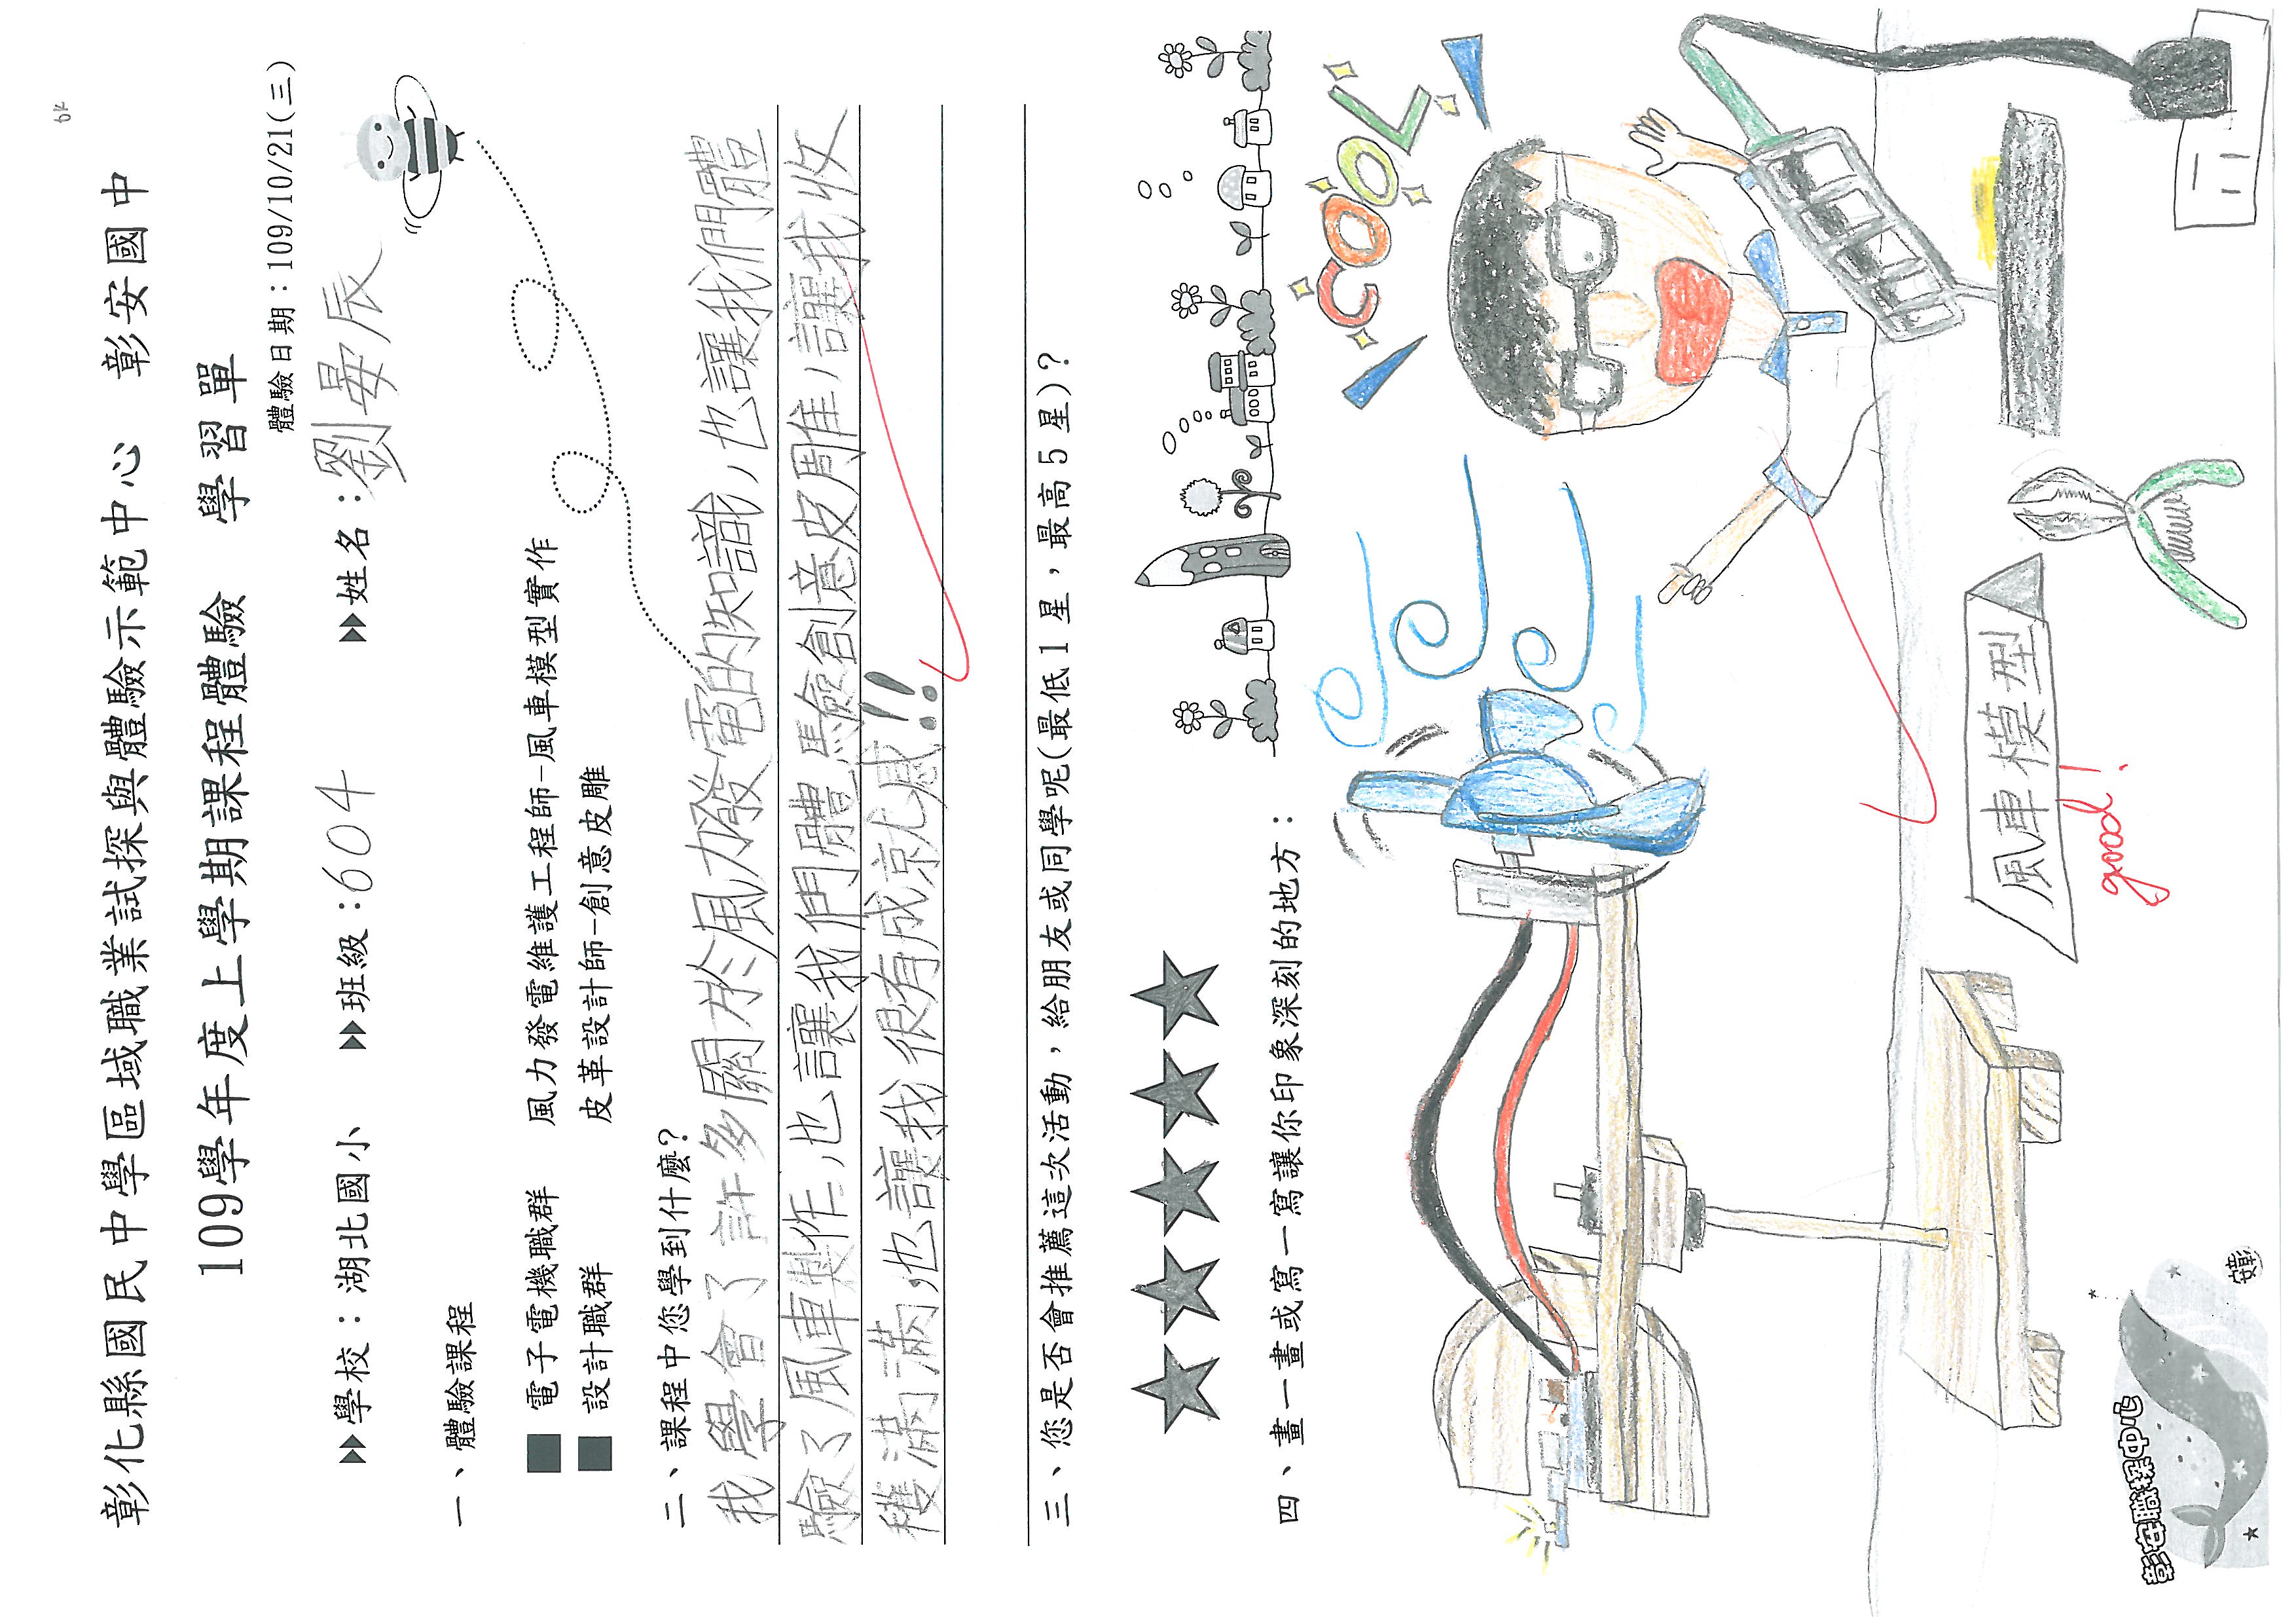 彰化縣國民中學區域職業試探與體驗示範中心　彰安國中
109學年度上學期課程體驗　學習單
體驗日期：109/10/21(三)
學校：湖北國小　班級：604　姓名：劉晏辰
一、體驗課程
電子電機職群　風力發電維護工程師-風車模型實作
設計職群　皮革設計師-創意皮雕
二、課程中您學到什麼?
我學會了許多關於風力發電的知識，也讓我們體
驗了風車製作，也讓我們體驗創意皮雕，讓我收
穫滿滿，也讓我很有成就感!!
三、您是否會推薦這次活動，給朋友或同學呢(最低1星，最高5星)?
★★★★★
四、畫一畫或寫一寫讓你印象深刻的地方：
COOL
風車模型
good!
彰安職探中心